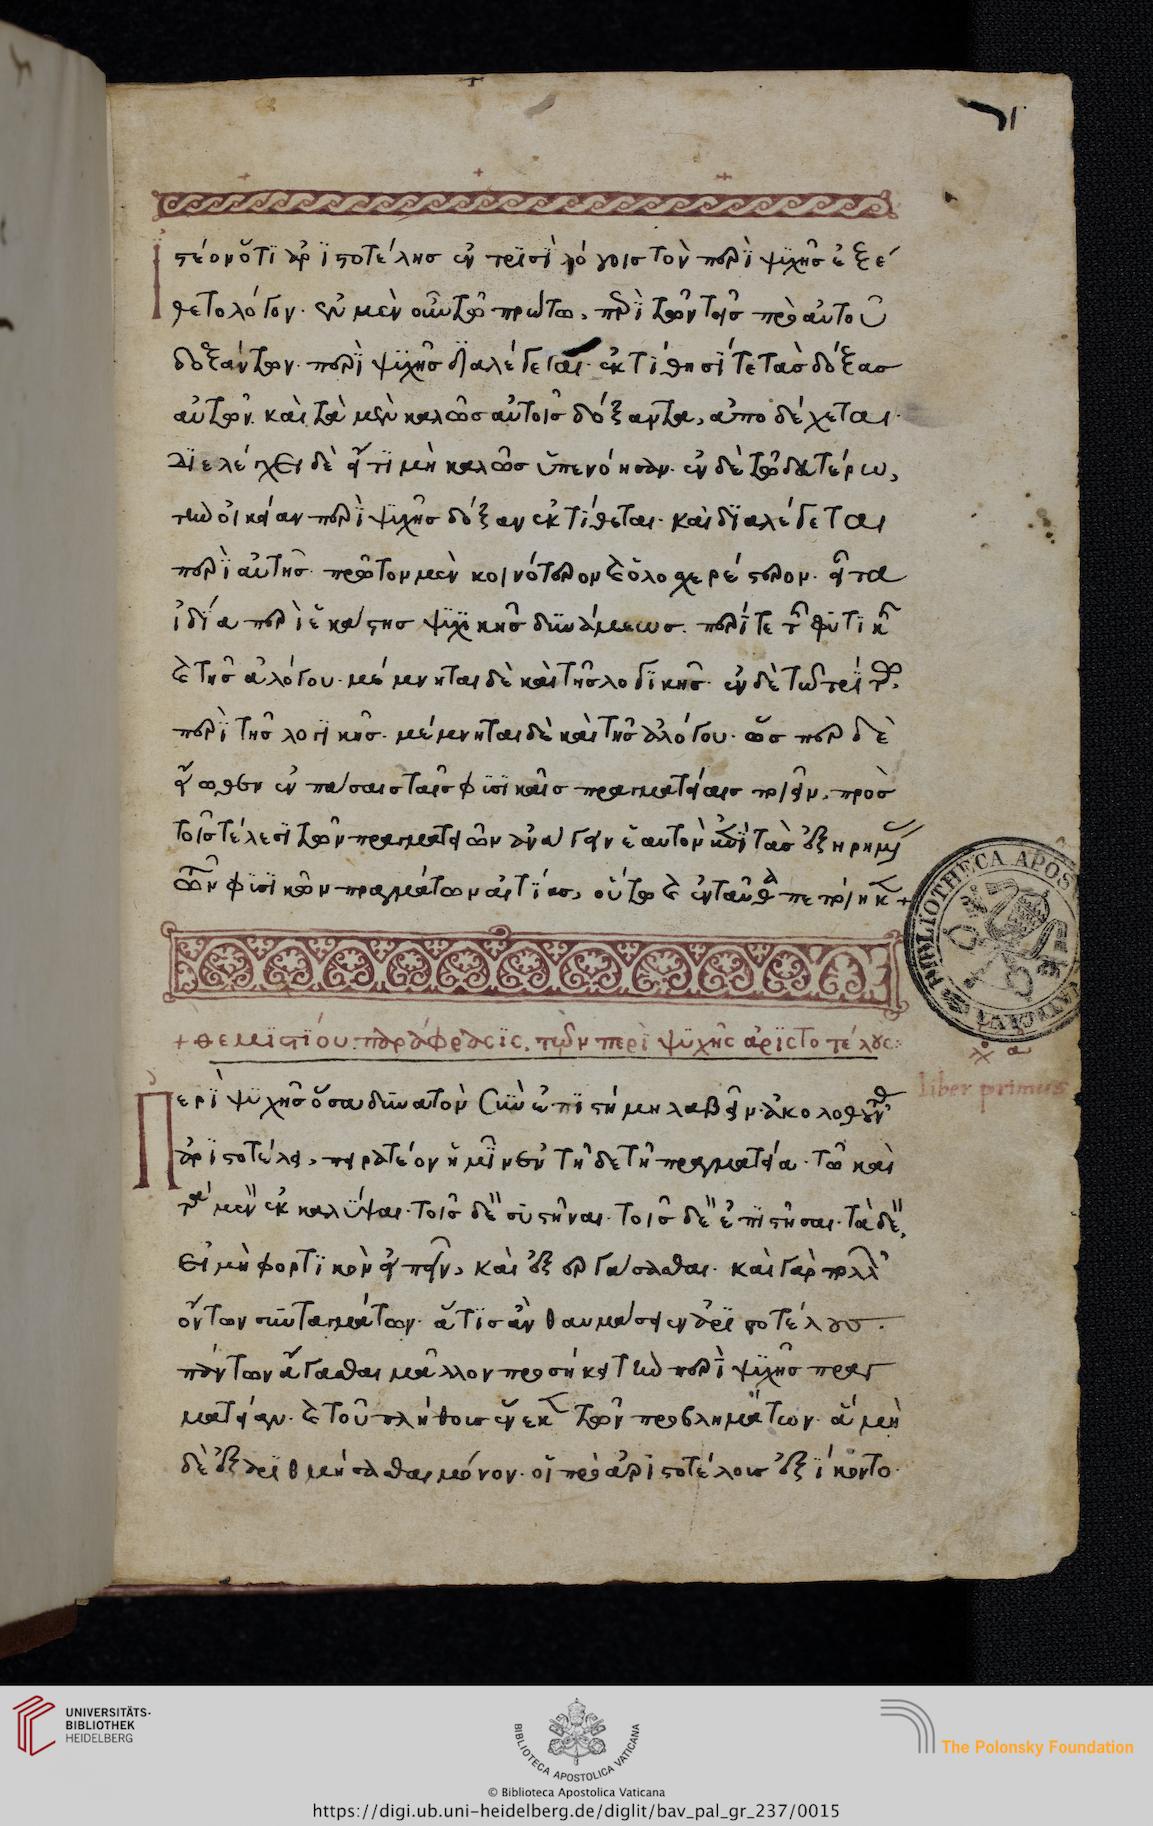 Ἰστέον ὅτι ἀριστοτέλησ ἐν τρισὶ λόγοισ τὸν περὶ ψυχῆσ ἐξέ
θετο λόγον· ἐν μὲν οὖν τῶ πρώτω, περὶ τῶν τοῖσ πρὸ αὐτοῦ
δοξάντων περὶ ψυχῆσ διαλέγεται· ἐκτίθησί τε τὰσ δόξασ
αὐτῶν· καὶ τὰ μὲν καλῶσ αὐτοῖσ δόξαντα, ἀποδέχεται·
διελέγχει δὲ εἴ τι μὴ καλῶσ ὑπενόησαν· ἐν δὲ τῶ δευτέρω,
τὴν οἰκείαν περὶ ψυχῆσ δόξαν ἐκτίθεται· καὶ διαλέγεται
περὶ αὐτῆσ· πρῶτον μὲν κοινότερον καὶ ὁλοσχερέστερον· εἶτα
ἰδία περὶ ἑκάστησ ψυχικῆσ δυνάμεωσ· περί τε τῆσ φυτικῆσ
καὶ τῆσ ἀλόγου· μέμνηται δὲ καὶ τῆσ λογικῆσ· ἐν δὲ τῶ τρίτω,
περὶ τῆσ λογικῆσ· μέμνηται δὲ καὶ τῆσ ἀλόγου· ὥσπερ δὲ
εἴωθεν ἐν πάσαισ ταῖσ φυσικαῖσ πραγματείαισ ποιεῖν, πρὸσ
τοῖσ τέλεσι τῶν πραγματειῶν ἀνάγειν ἑαυτὸν ἐπὶ τὰσ ἐξηρημένασ
τῶν φυσικῶν πραγμάτων αἰτίασ, οὕτω καὶ ἐνταῦθα πεποίηκε +
+ θεμιστίου παράφρασις, τῶν περὶ ψυχῆς ἀριστοτέλους:
βιβλίον α
liber primus
Περὶ ψυχῆσ ὅσα δυνατὸν σὺν ἐπιστήμη λαβεῖν· ἀκολουθοῦντασ
ἀριστοτέλει, πειρατέον ἡμῖν ἐν τῆδε τῆ πραγματεία· τῶ καὶ
τὰ μὲν ἐκκαλύψαι· τοῖσ δὲ συστῆναι· τοῖσ δὲ ἐπιστῆσαι· τὰ δὲ,
εἰ μὴ φορτικὸν εἰπεῖν, καὶ ἐξεργάσασθαι· καὶ γὰρ πολλῶν
ὄντων συνταγμάτων· ἅ τισ ἂν θαυμάσειεν ἀριστοτέλουσ·
πάντων ἄγασθαι μᾶλλον προσήκει τὴν περὶ ψυχῆσ πραγ
ματείαν· καὶ τοῦ πλήθουσ ἕνεκα τῶν προβλημάτων· ἃ μὴ
δὲ ἐξαριθμήσασθαι μόνον· οἱ πρὸ ἀριστοτέλουσ ἐξίκοντο·
UNIVERSITÄTS-
BIBLIOTHEK
HEIDELBERG
BIBLIOTECA APOSTOLICA VATICANA
© Biblioteca Apostolica Vaticana
The Polonsky Foundation
https://digi.ub.uni-heidelberg.de/diglit/bav_pal_gr_237/0015